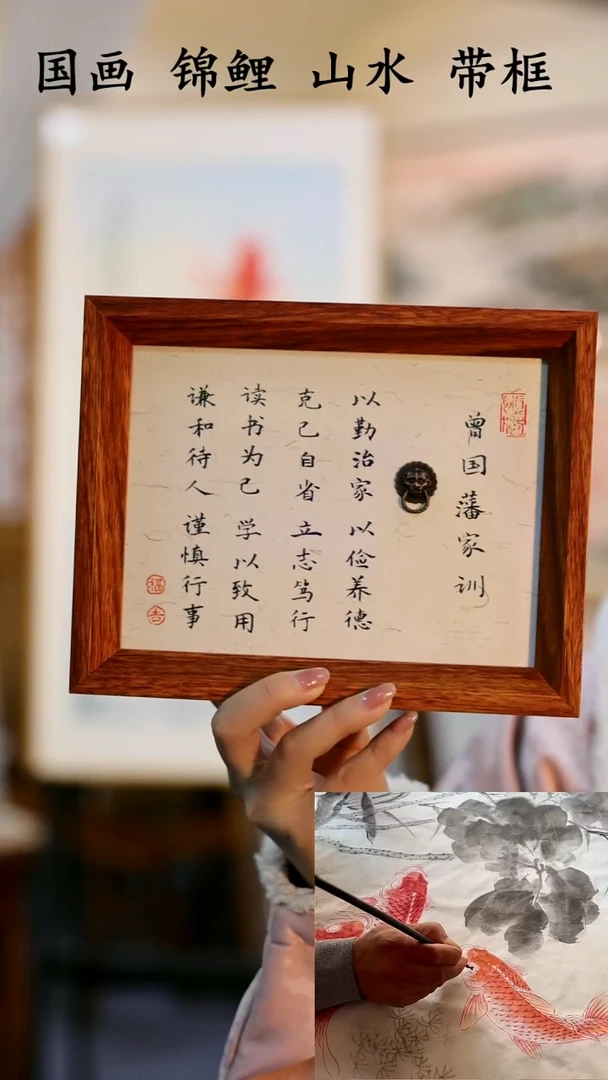 国画 锦鲤 山水 带框
曾国藩家训
以勤治家 以俭养德
克己自省 立志笃行
读书为己 学以致用
谦和待人 谨慎行事
福
吉